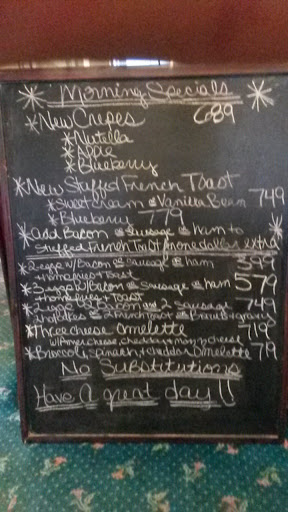 Morning Specials
* New Crepes 689
* Nutella
* Apple
* Blueberry
* New Stuffed French Toast
* Sweet cream & Vanilla Bean 749
* Blueberry 779
* add Bacon or Sausage or ham to
Stuffed French Toast for one dollar extra
* 2 eggs w/ Bacon or Sausage or ham 399
+ homefries + Toast
* 3 eggs w/ Bacon or Sausage or ham 579
+ homefries + Toast
* 2 eggs 2 Bacon 2 Sausage 749
* Three cheese omelette 719
w/ Amer. cheese, cheddar + mozz cheese
* Broccoli, spinach, + cheddar Omelette 719
No Substitutions
Have a great day!!